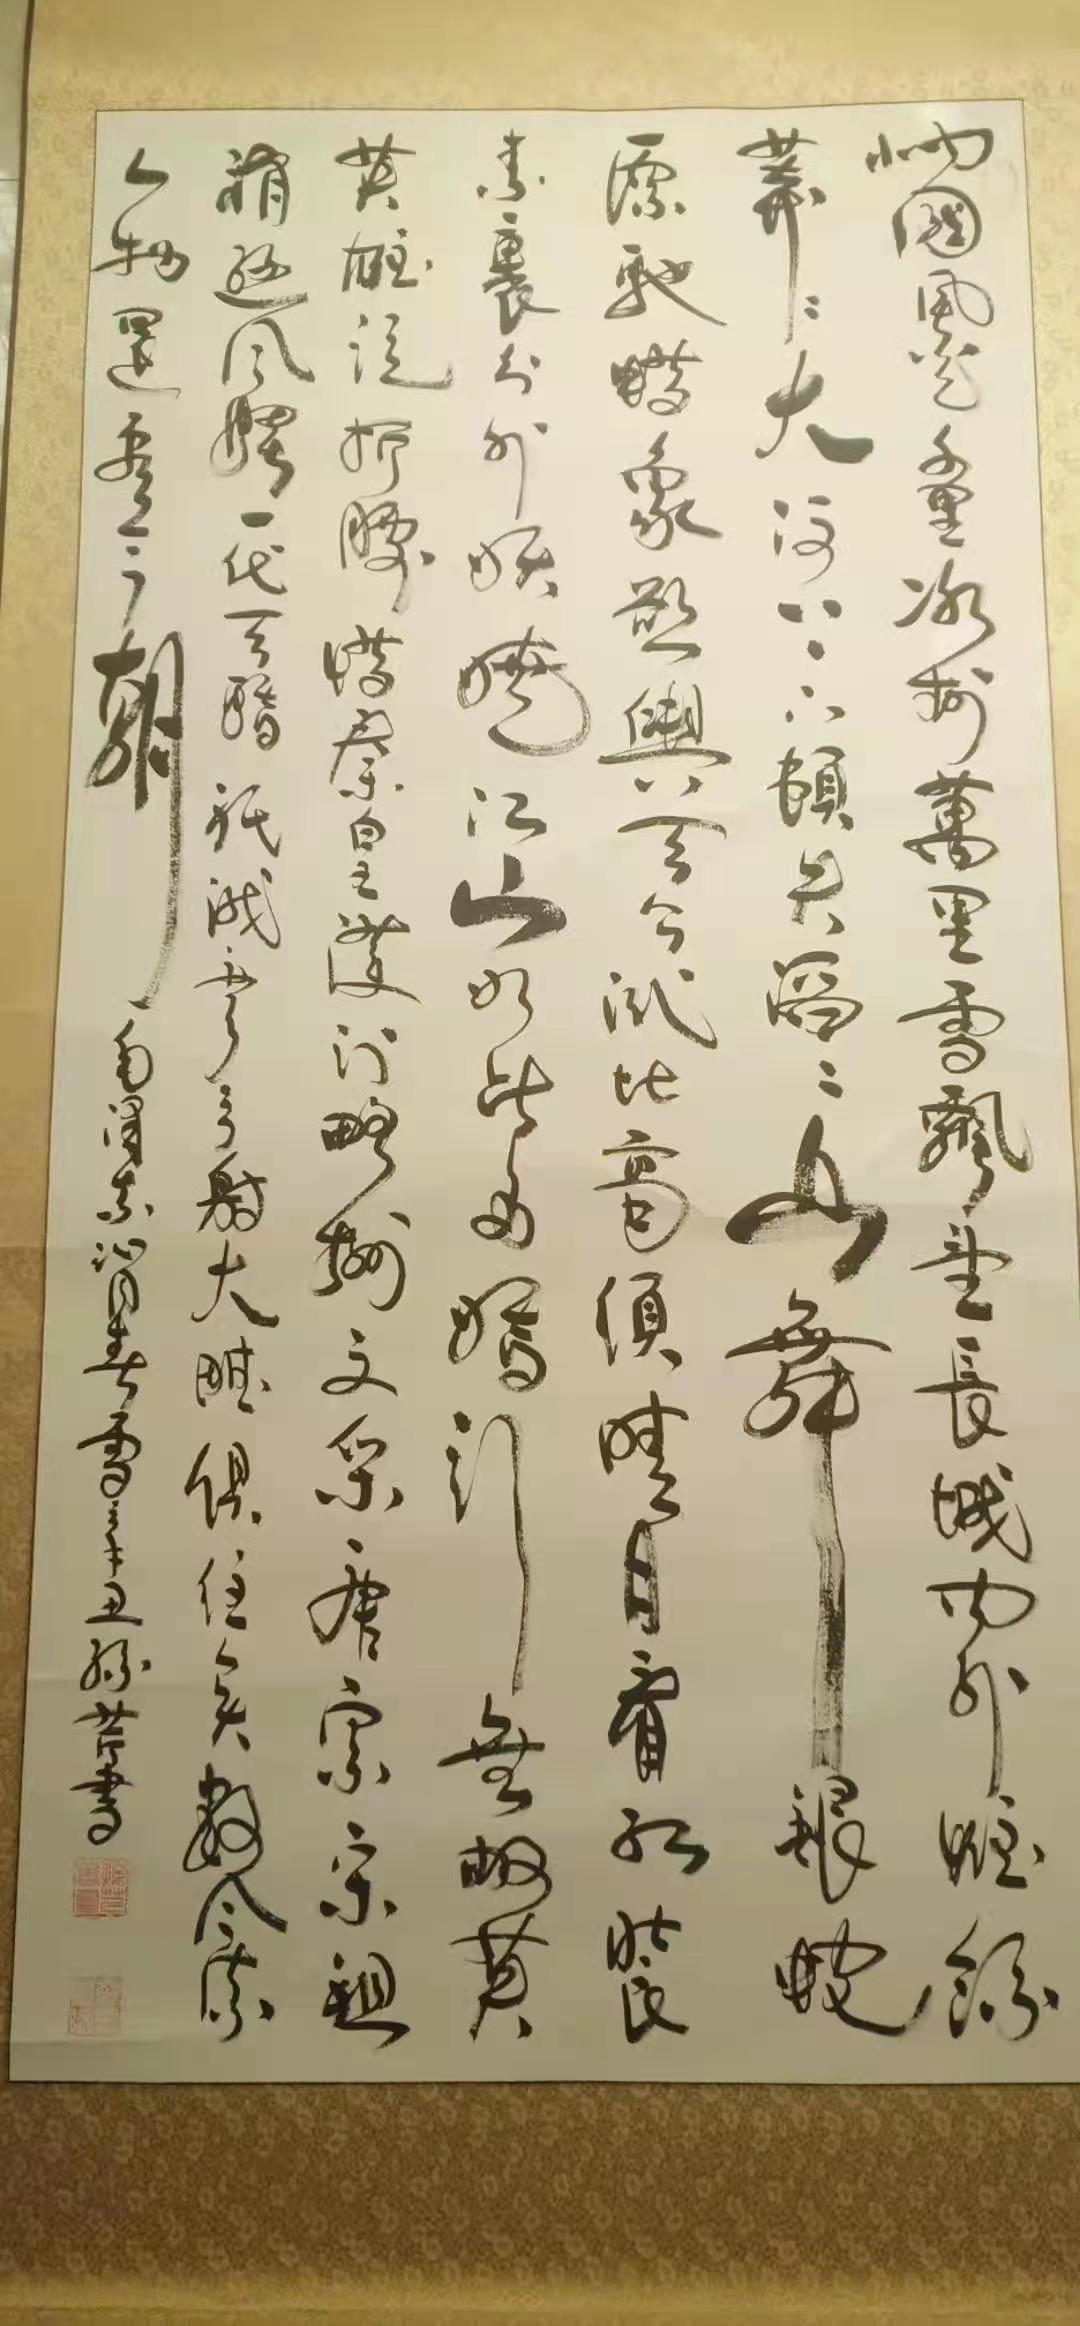 北國風光千里冰封萬里雪飄望長城内外惟餘
莽〻大河上下頓失滔〻山舞銀蛇
原馳蠟象欲與天公試比高須晴日看紅裝
素裹分外妖嬈江山如此多嬌引無數英
英雄競折腰惜秦皇漢武略輸文采唐宗宋祖
稍遜風騷一代天驕祇識彎弓射大雕俱往矣數風流
人物還看今朝 毛澤東沁園春雪辛丑孫芹書